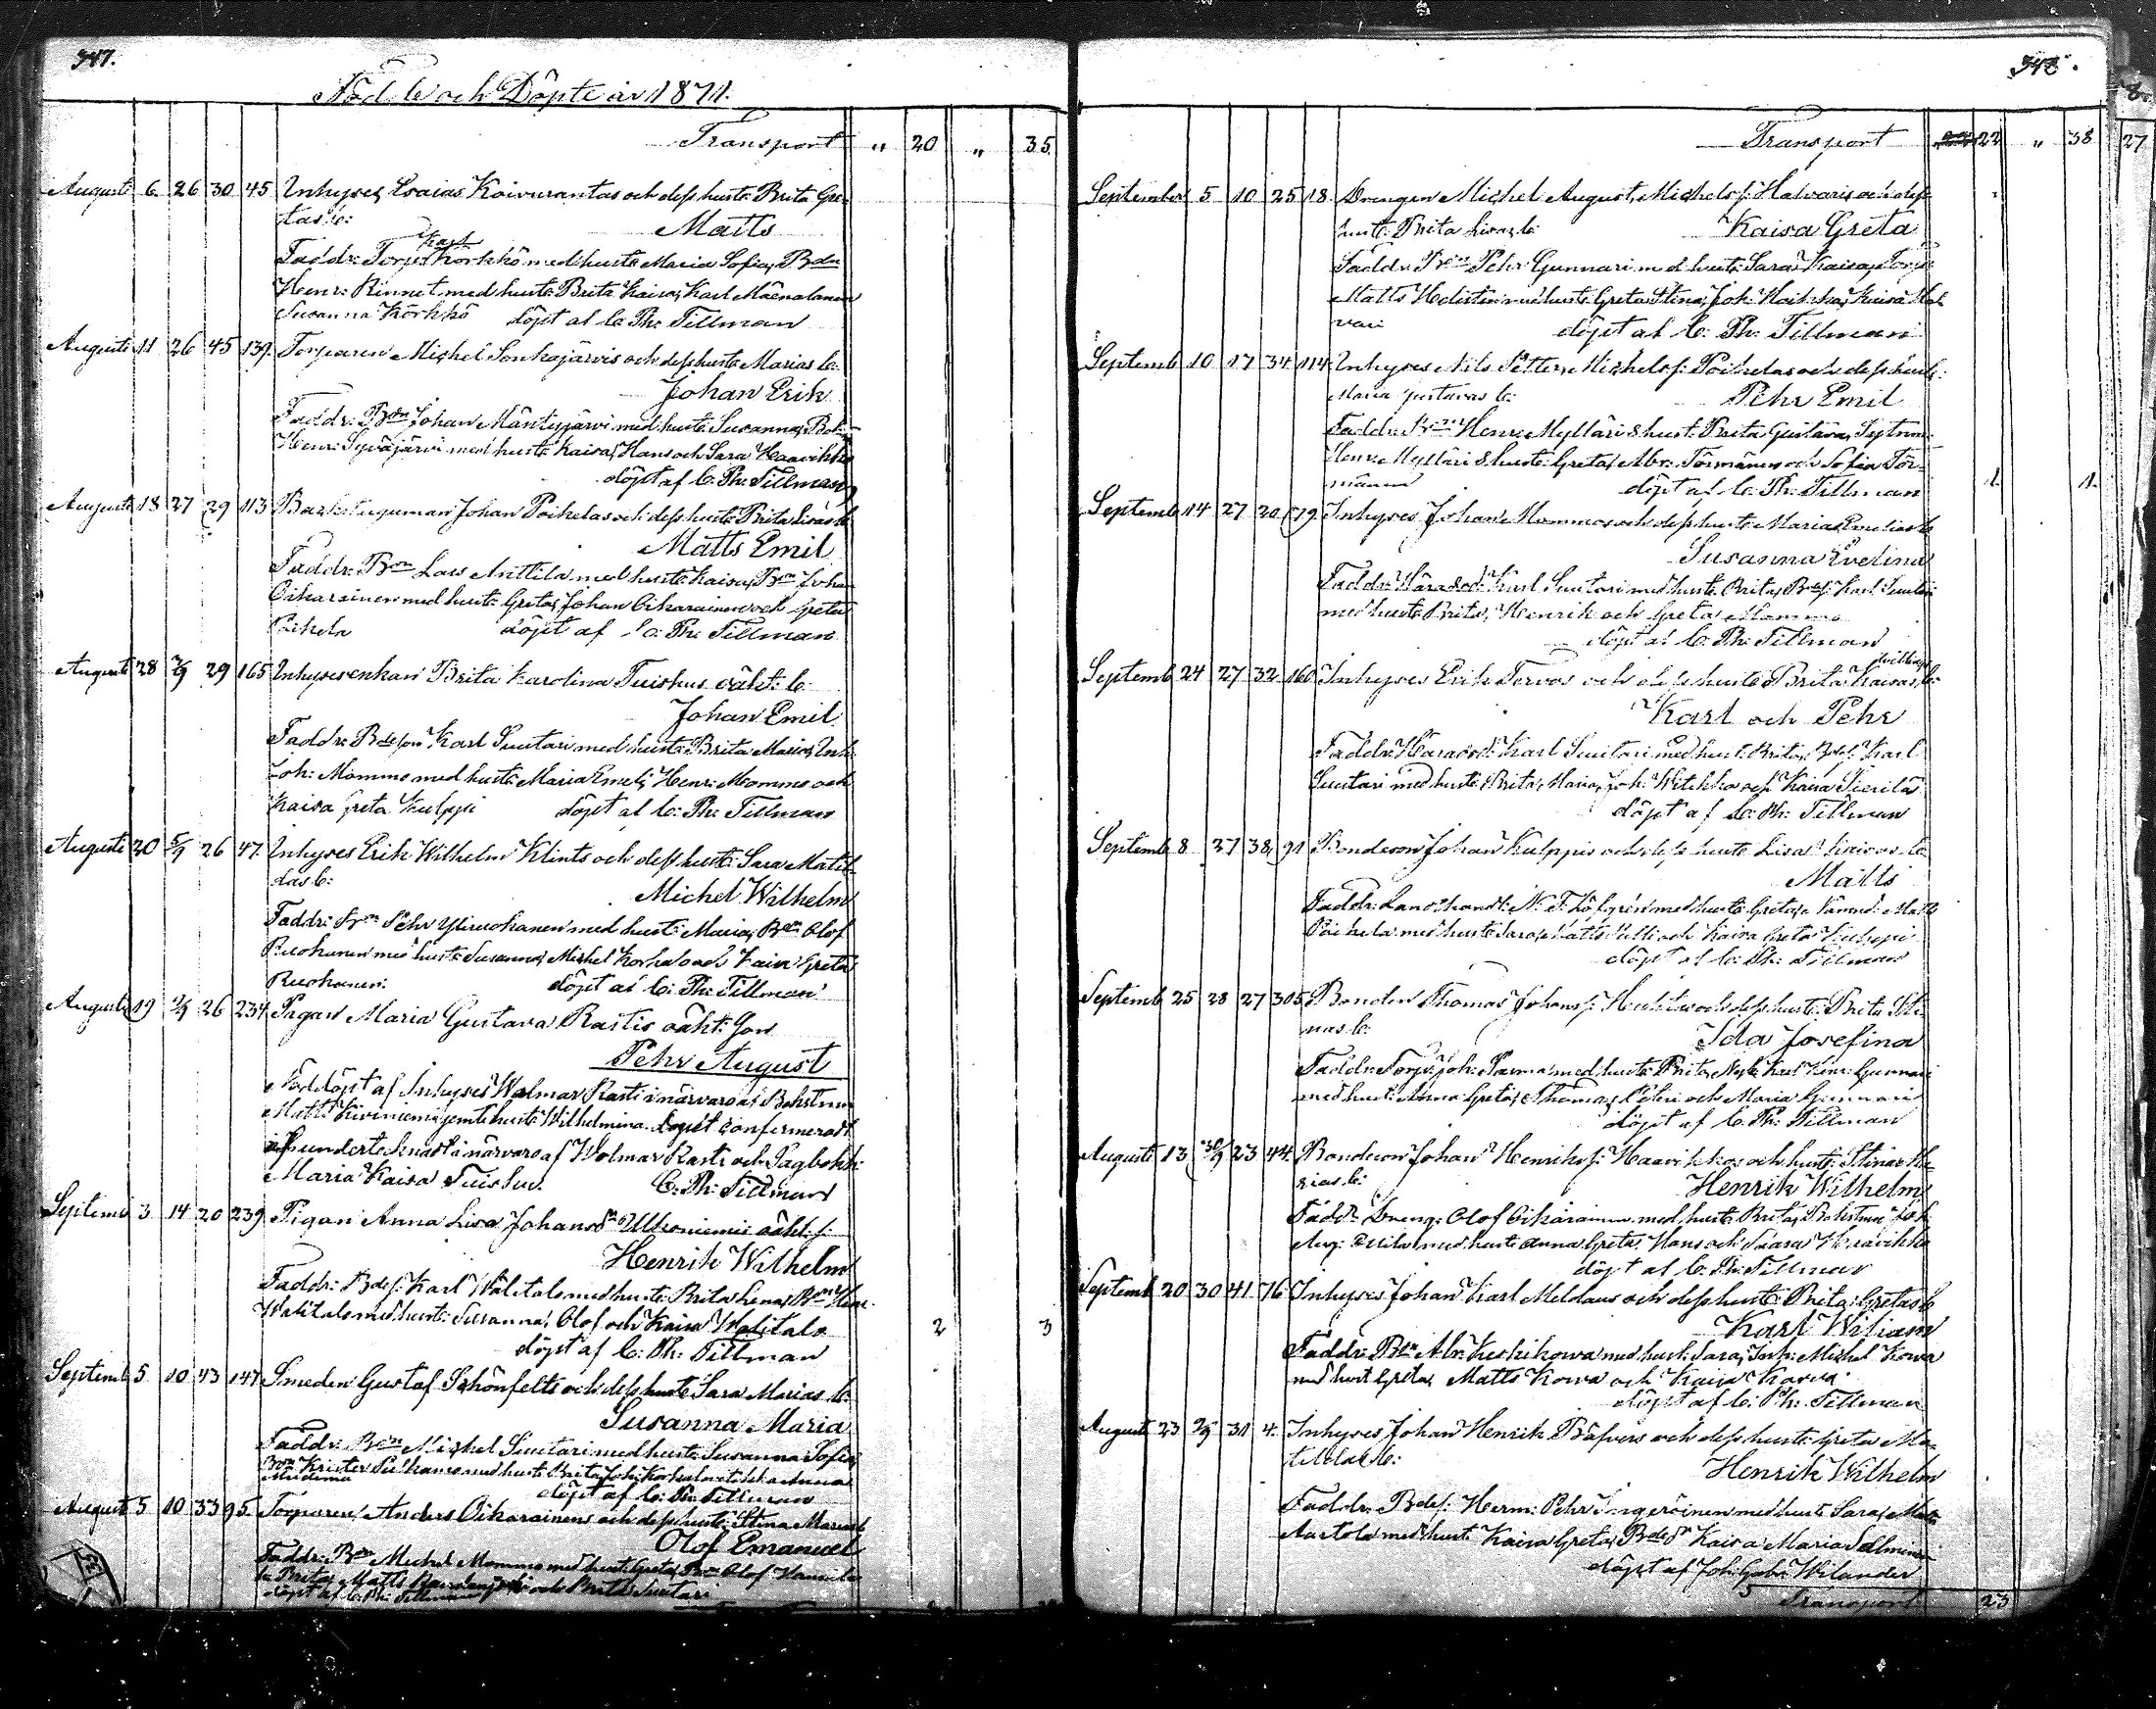 347.
Födde och Döpte år 1871.
Transport " 20 " 35
Augusti 6 26 30 45 Inhyses Esaias Koivurantas och dess hustr. Brita Gre-
tas b:
Matts
Karl
Faddr: Torp: Körkkö med hustr: Maria Sofia, Bdn
Henr: Rinnet med hustr: Brita Kaisa, Karl Mäenalanen
Susanna Körkkö döpt af C: Ph: Tillman
Augusti 11 26 45 139. Torparen Michel Sonkajärvis och dess hustr: Marias b:
Johan Erik
Faddr: Bdn Johan Mäntyjärvi med hustr: Susanna,
Henr: Syväjärvi med hustr: Kaisa, Hans och Sara Haavikko
döpt af C: Ph: Tillman
Augusti 18 27 29 113 Backstuguman Johan Poikelas och dess hustr: Brita Lisas b
Matts Emil
Faddr: Bdn Lars Anttila med hustr: Kaisa, Bdn Johan
Oikarainen med hustr: Greta, Johan Oikarainen och Greta
Poikela döpt af C: Ph: Tillman
Augusti 28 2/9 29 165 Inhysesenkan Brita Karolina Tuiskus oäkt: b:
Johan Emil
Faddr: Bdeson Karl Suutari med hustr: Brita Maria, Inh:
Joh: Mommo med hustr: Maria Emeli, Henr: Mommo och
Kaisa Greta Kulppi döpt af C: Ph: Tillman
Augusti 20 5/9 26 47. Inhyses Erik Wilhelm Klints och dess hustr: Sara Matil-
das b:
Michel Wilhelm
Faddr: Bdn Pehr Yliruokanen med hustr: Maria, Bdn Olof
Ruohanen med hustr: Susanna, Michel Korkalo och Kaisa Greta
Ruohanen. döpt af C: Ph: Tillman
Augusti 19 26 234 Pigan Maria Gustava Rastis oäkt: Gon
Pehr August
Nöddöpt af Inhyses Walmar Rasti i närvaro af Bakstmn
Matt: Kiviniemi jemte hustr: Wilhelmina. Dopet confirmeradt
af undertecknad i närvaro af Wolmar Rasti och
Maria Kaisa Tuisku. C: Ph: Tillman
Septemb 3 14 20 239. Pigan Anna Lisa Johansdr Ulkoniemis oäkt: f:
Henrik Wilhelm
Faddr: Bdes: Karl Wälitalo med hustr: Brita Lena, Bdn Henr.
Wälitalo med hustr: Susanna, Olof och Kaisa Wälitalo
döpt af C: Ph: Tillman
2 3
Septemb 5 10 43 147 Smeden Gustaf Schönfelts och dess hustr: Sara Marias b:
Susanna Maria
Faddr: Bdn Michel Suutari med hustr: Susanna Sofia,
Bdn Krister med hustr: Brita, Joh: Korkalo och Anna
döpt af C: Ph: Tillman
Augusti 5 10 33 95. Torparen Anders Oikarainens och dess hustr: Stina Marias b
Olof Emanuel
Faddr: Bdn Michel Mommo med hustr: Greta, Bdn Olof
Brita, Matts och Brita Suutari
döpt af C: Ph: Tillman
348.
Transport 22 " 38
September 5 10 25 18. Drengen Michel August, Michelsf: Halvaris och dess
hustr: Brita Lisas b:
Kaisa Greta
Faddr: Bdn Pehr Gunnari med hustr: Sara Kaisa, Torp:
Matts med hustr: Greta Stina, Joh: Kaisa Hal-
vari döpt af C: Ph: Tillman
Septemb 10 17 34 114 Inhyses Nils Petter, Michelsf: Poikelas och dess hustr:
Maria Gustavas b:
Pehr Emil
Faddr: Henr: Mylläri & hust: Brita Gustava,
Henr: Mylläri & hustr: Greta, Abr: Törmänen och Sofia Tör-
mänen döpt af C: Ph: Tillman
1. 1.
Septemb 14 27 20 179. Inhyses Johan Mommos och dess hustr: Maria Emelias b
Susanna Evelina
Faddr: Häradsd: Karl Suutari med hustr: Brita, Bdes: Karl Suutari
med hustr: Brita, Henrik och Greta Mommo
döpt af C: Ph: Tillman
Septemb 24 27 32 160 Inhyses Erik Tervos och dess hustr: Brita Kaisas tvillingar b:
Karl och Pehr
Faddr: Häradsd: Karl Suutari med hust: Brita, Bdes: Karl
Suutari med hustr: Brita Maria, Joh: Witikko och Kaisa Sierilä
döpt af C: Ph: Tillman
Septemb 8 27 38 91 Bondeson Johan Kulppis och dess hustr: Lisa Kaisas b:
Matts
Faddr: Landthandl: N: F: Löfgren med hustr: Greta, Nämnd: Matts
Poikela med hustr: Sara, Matts och Kaisa Greta Kulppi
döpt af C: Ph: Tillman
Septemb 25 28 27 305. Bonden Thomas Johansf: och dess hustr: Brita Sti-
nas b:
Ida Josefina
Faddr: Torp: Joh: med hustr: Brita, Henr: Gunnari
med hustr: Anna Greta, Thomas och Maria Gunnari
döpt af C: Ph: Tillman
Augusti 13 30/9 23 44. Bondeson Johan Henriksf: Haavikkos och hustr: Stina Ma-
rias b:
Henrik Wilhelm
Fadd: Dreng: Olof Oikarainen med hustr: Brita, Bakstmn Joh
Aug: med hustr: Anna Greta, Hans och Saara Haavikko
döpt af C: Ph: Tillman
Septemb 20 30 41 76 Inhyses Johan Karl Meldaus och dess hustr: Brita Gretas b
Karl Wiliam
Faddr: Bdn Abr: Keskikowa med hust: Sara, Torp: Michel Kowa
med hust: Greta, Matts Kowa och Kaisa Kowa.
döpt af C: Ph: Tillman
Augusti 23 31 4. Inhyses Johan Henrik Bäfvers och dess hustr: Greta Ma-
tildas b:
Henrik Wilhelm
Faddr: Bdes: Herm: Pehr Ingeröinen med hustr: Sara, Matts
Aartola med hust: Kaisa Greta, Bdedr Kaisa Maria Salminen
döpt af Joh: Gabr: Wilander
Transport 23
8.
27